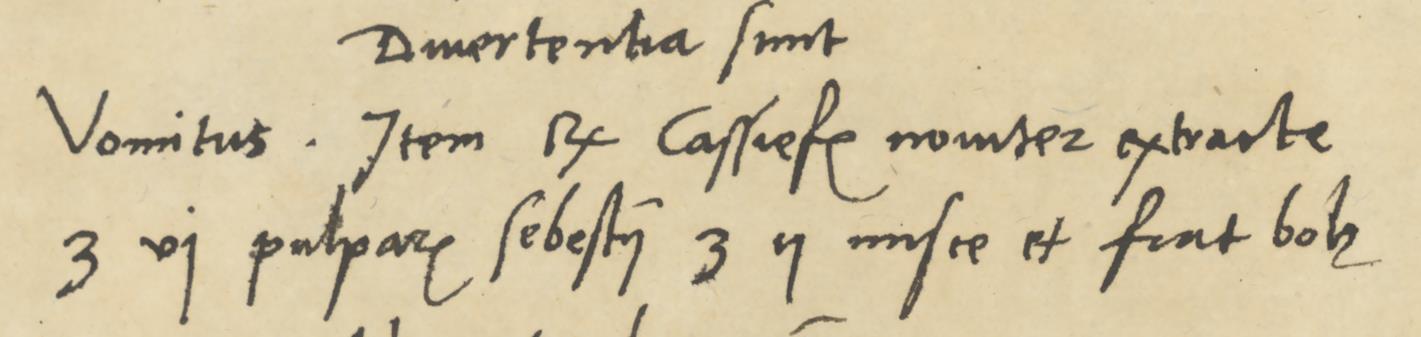 Diuertentia sunt
Vomitus . Item ℞ Cassiefꝭ nouiter extracte
ʒ vj pulparꝝ sebestiī ʒ ij misce et fiat bolꝰ